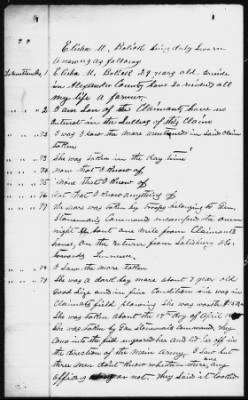 Elisha M, Bolick being duly sworn
Answers as follows
Elisha M, Bolick 29 years old. reside
in Alexander County have so resided all
my life a farmer.
2 I am Son of the Claimant, have no
interest in the Success of this Claim
72 I was & saw the mare mentioned in said Claim
taken
73 She was taken in the day time
74 None that I know of
75 None that I know of
76 Not that I know anything of
77 The mare was taken by troops belonging to Gen.
Stoneman's Command encamped the over
night about one mile from Claimants
house, On the return from Salisbury N.C.
towards Tennessee.
78 I saw the mare taken
79 She was a dark bay mare about 7 year old
Good size and in good Condition was in
Claimants field plowing She was worth $150
She was taken about the 17th day of April
She was taken by Gen Stonemans Command, they
Came into the field ungeared her and led her off in
the direction of the Main Army, I saw but
three men dont know whether there was any
officers or not. They said it looked